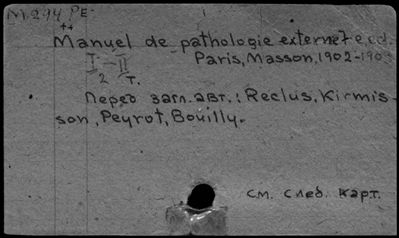 М.244 РЕ-
Manuel de pathologie externe 7 e ed.
I - II Paris, Masson, 1902-190
2 т.
Перед загл. авт.: Reclus, Kirmis-
son, Peyrot, Bouilly.
см. след. карт.